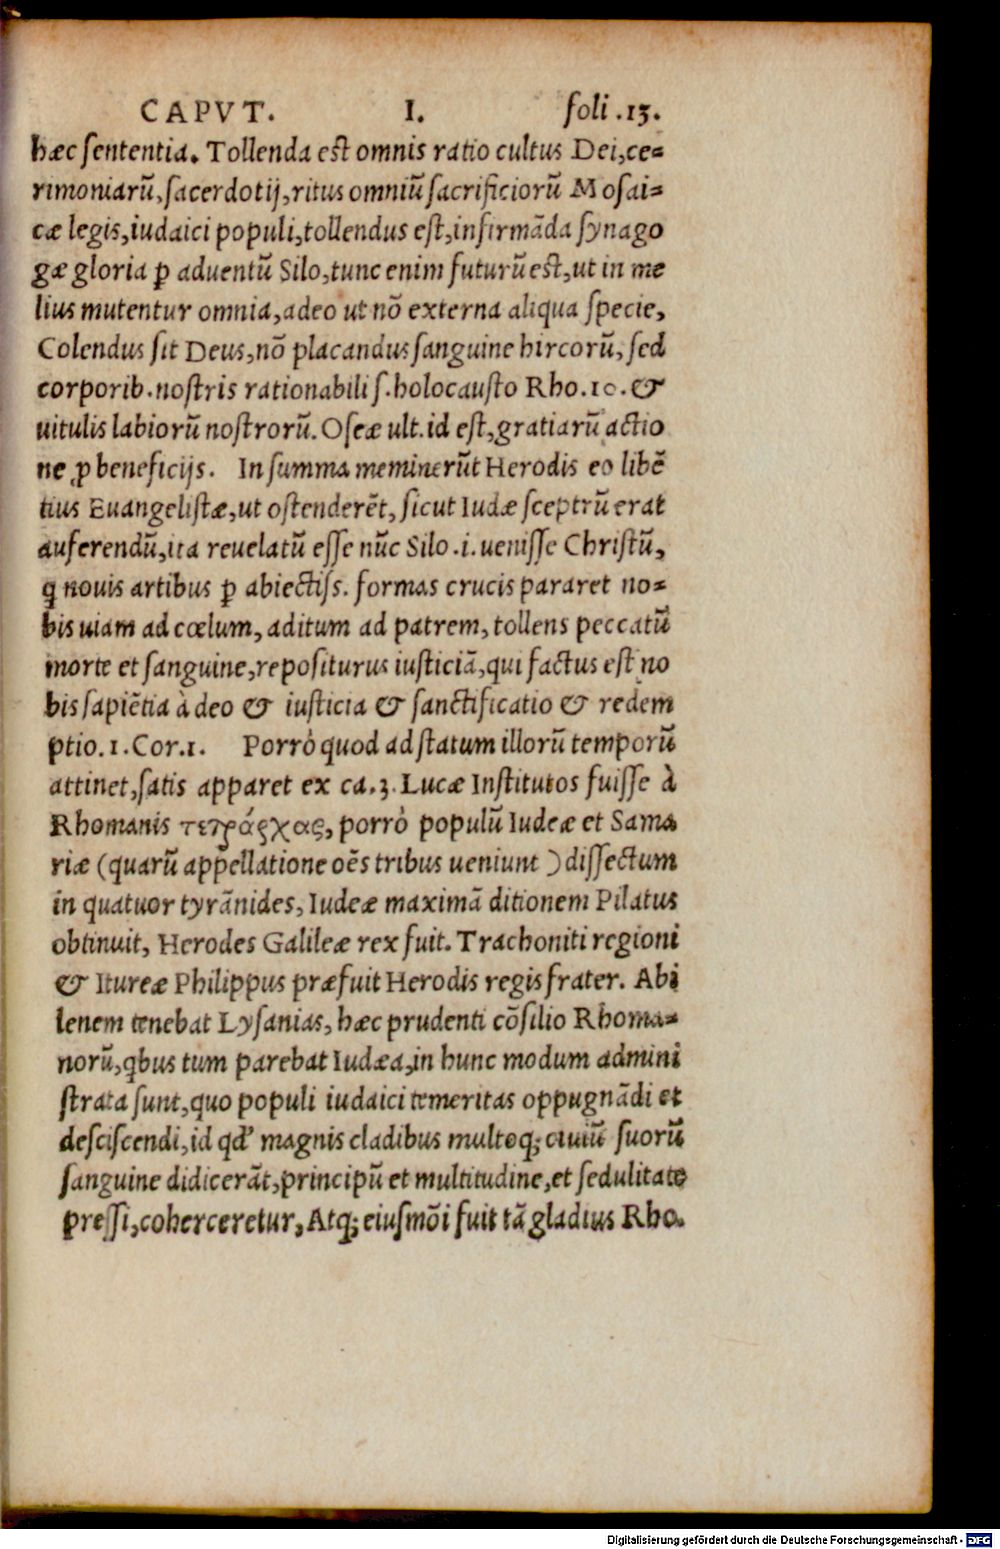 CAPVT. I. foli .13.
hæc sententia. Tollenda est omnis ratio cultus Dei,ce=
rimoniarũ,sacerdotij,ritus omniũ sacrificiorũ Mosai=
cæ legis,iudaici populi,tollendus est,infirmãda synago
gæ gloria ꝑ aduentũ Silo,tunc enim futurũ est,ut in me
lius mutentur omnia,adeo ut nõ externa aliqua specie,
Colendus sit Deus,nõ placandus sanguine hircorũ,sed
corporib.nostris rationabili s.holocausto Rho.10.&
uitulis labiorũ nostrorũ.Oseæ ult.id est,gratiarũ actio
ne ꝓ beneficijs. In summa meminerũt Herodis eo libẽ
tius Euangelistæ,ut ostenderẽt,sicut Iudæ sceptrũ erat
auferendũ,ita reuelatũ esse nũc Silo.i.uenisse Christũ,
q̃ nouis artibus ꝑ abiectiss. formas crucis pararet no=
bis uiam ad cœlum, aditum ad patrem, tollens peccatũ
morte et sanguine,repositurus iusticiã,qui factus est no
bis sapiẽtia à deo & iusticia & sanctificatio & redem
ptio.1.Cor.1. Porrò quod ad statum illorũ temporũ
attinet,satis apparet ex ca.3.Lucæ Institutos fuisse à
Rhomanis τετράρχας, porrò populũ Iudeæ et Sama
riæ (quarũ app̃ellatione oẽs tribus ueniunt ) dissectum
in quatuor tyrãnides, Iudeæ maximã ditionem Pilatus
obtinuit, Herodes Galileæ rex fuit. Trachoniti regioni
& Itureæ Philippus præfuit Herodis regis frater. Abi
lenem tenebat Lysanias, hæc prudenti cõsilio Rhoma=
norũ,q̃bus tum parebat Iudæa,in hunc modum admini
strata sunt,quo populi iudaici temeritas oppugnãdi et
desciscendi,id qd' magnis cladibus multoq; ciuiũ suorũ
sanguine didicerãt,principũ et multitudine,et sedulitate
pressi,coherceretur, Atq; eiusmõi fuit tã gladius Rho.
Digitalisierung gefördert durch die Deutsche Forschungsgemeinschaft - DFG